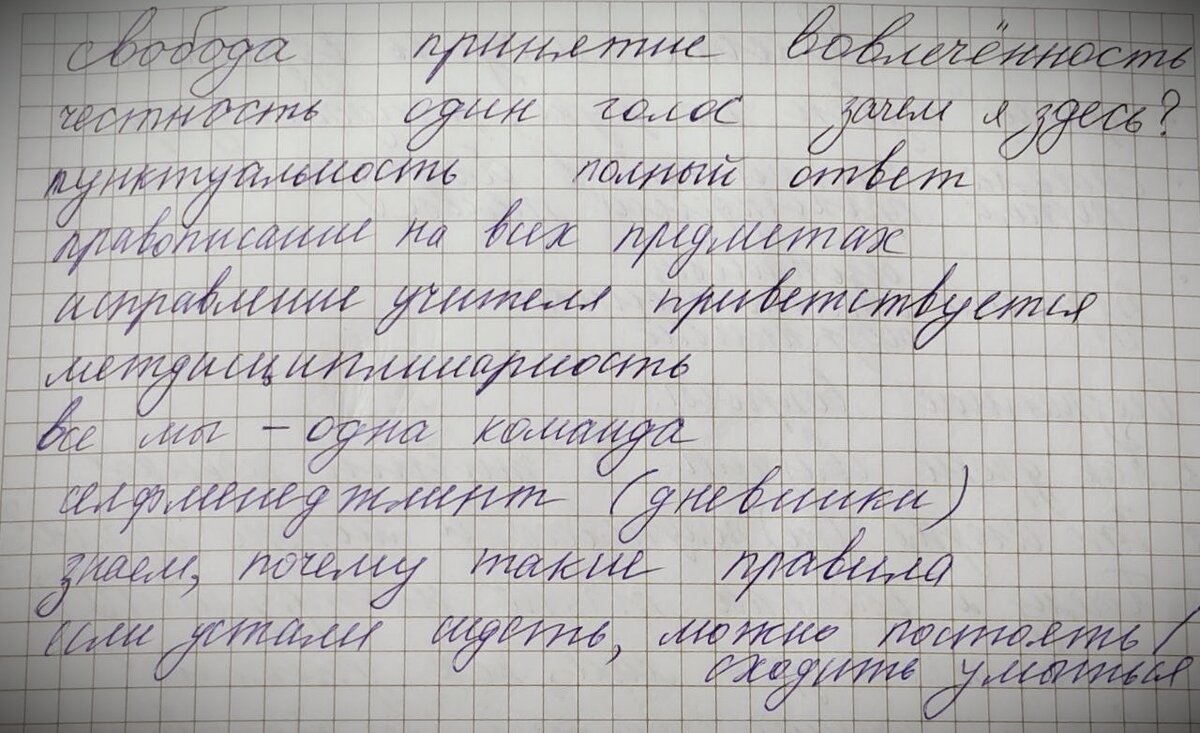 свобода принятие вовлечённость
честность один голос зачем я здесь?
пунктуальность полный ответ
правописание на всех предметах
исправление учителя приветствуется
междисциплинарность
все мы - одна команда
селфменеджмент (дневники)
знаем, почему такие правила
если устали сидеть, можно постоять/
сходить умыться